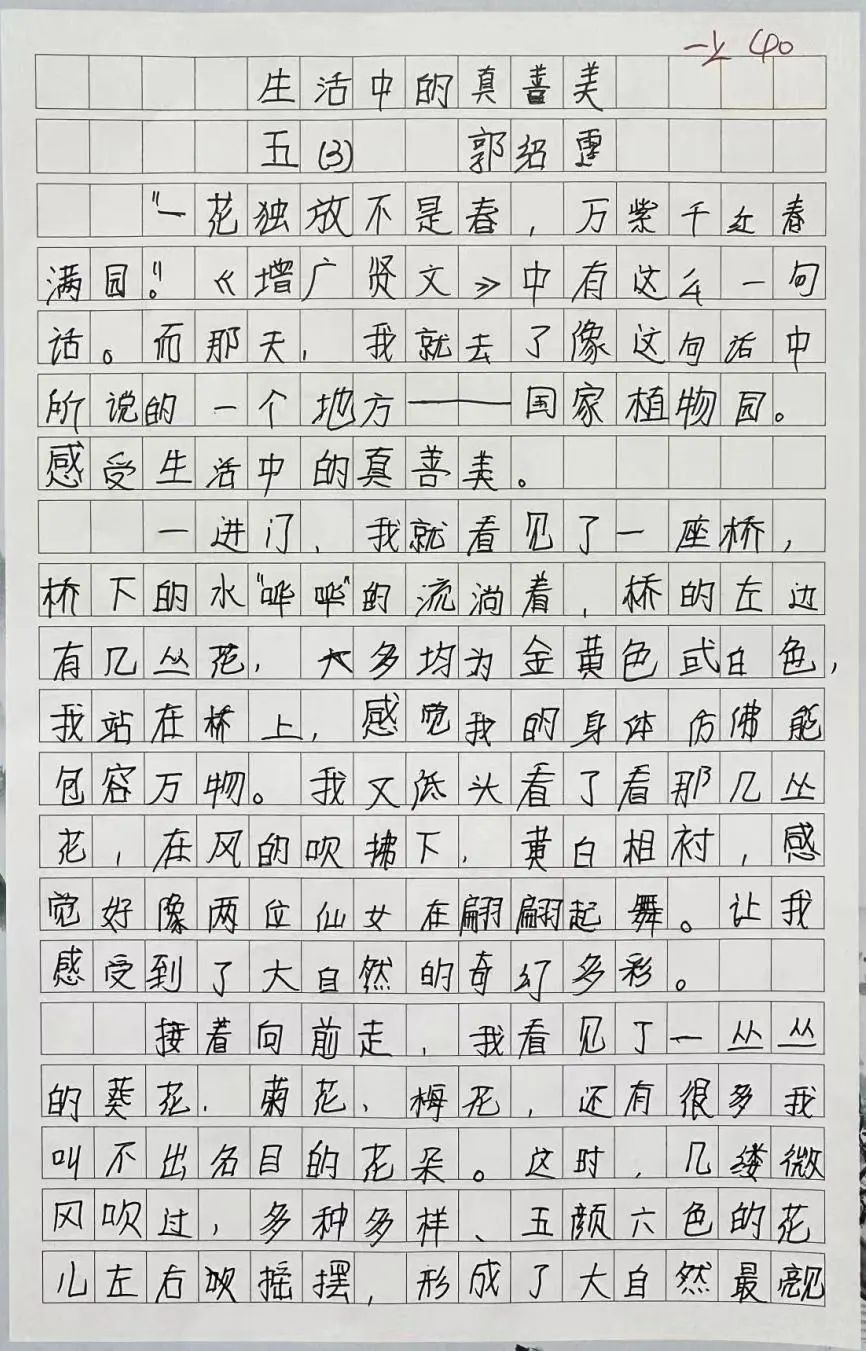 一上 40
生活中的真善美
五(3) 郭绍霆
“一花独放不是春，万紫千红春
满园。”《增广贤文》中有这么一句
话。而那天，我就去了像这句话中
所说的一个地方——国家植物园。
感受生活中的真善美。
一进门，我就看见了一座桥，
桥下的水“哗哗”的流淌着，桥的左边
有几丛花，大多均为金黄色或白色，
我站在桥上，感觉我的身体仿佛能
包容万物。我又低头看了看那几丛
花，在风的吹拂下，黄白相衬，感
觉好像两位仙女在翩翩起舞。让我
感受到了大自然的奇幻多彩。
接着向前走，我看见了一丛丛
的葵花、菊花、梅花，还有很多我
叫不出名目的花朵。这时，几缕微
风吹过，多种多样、五颜六色的花
儿左右吹摇摆，形成了大自然最靓